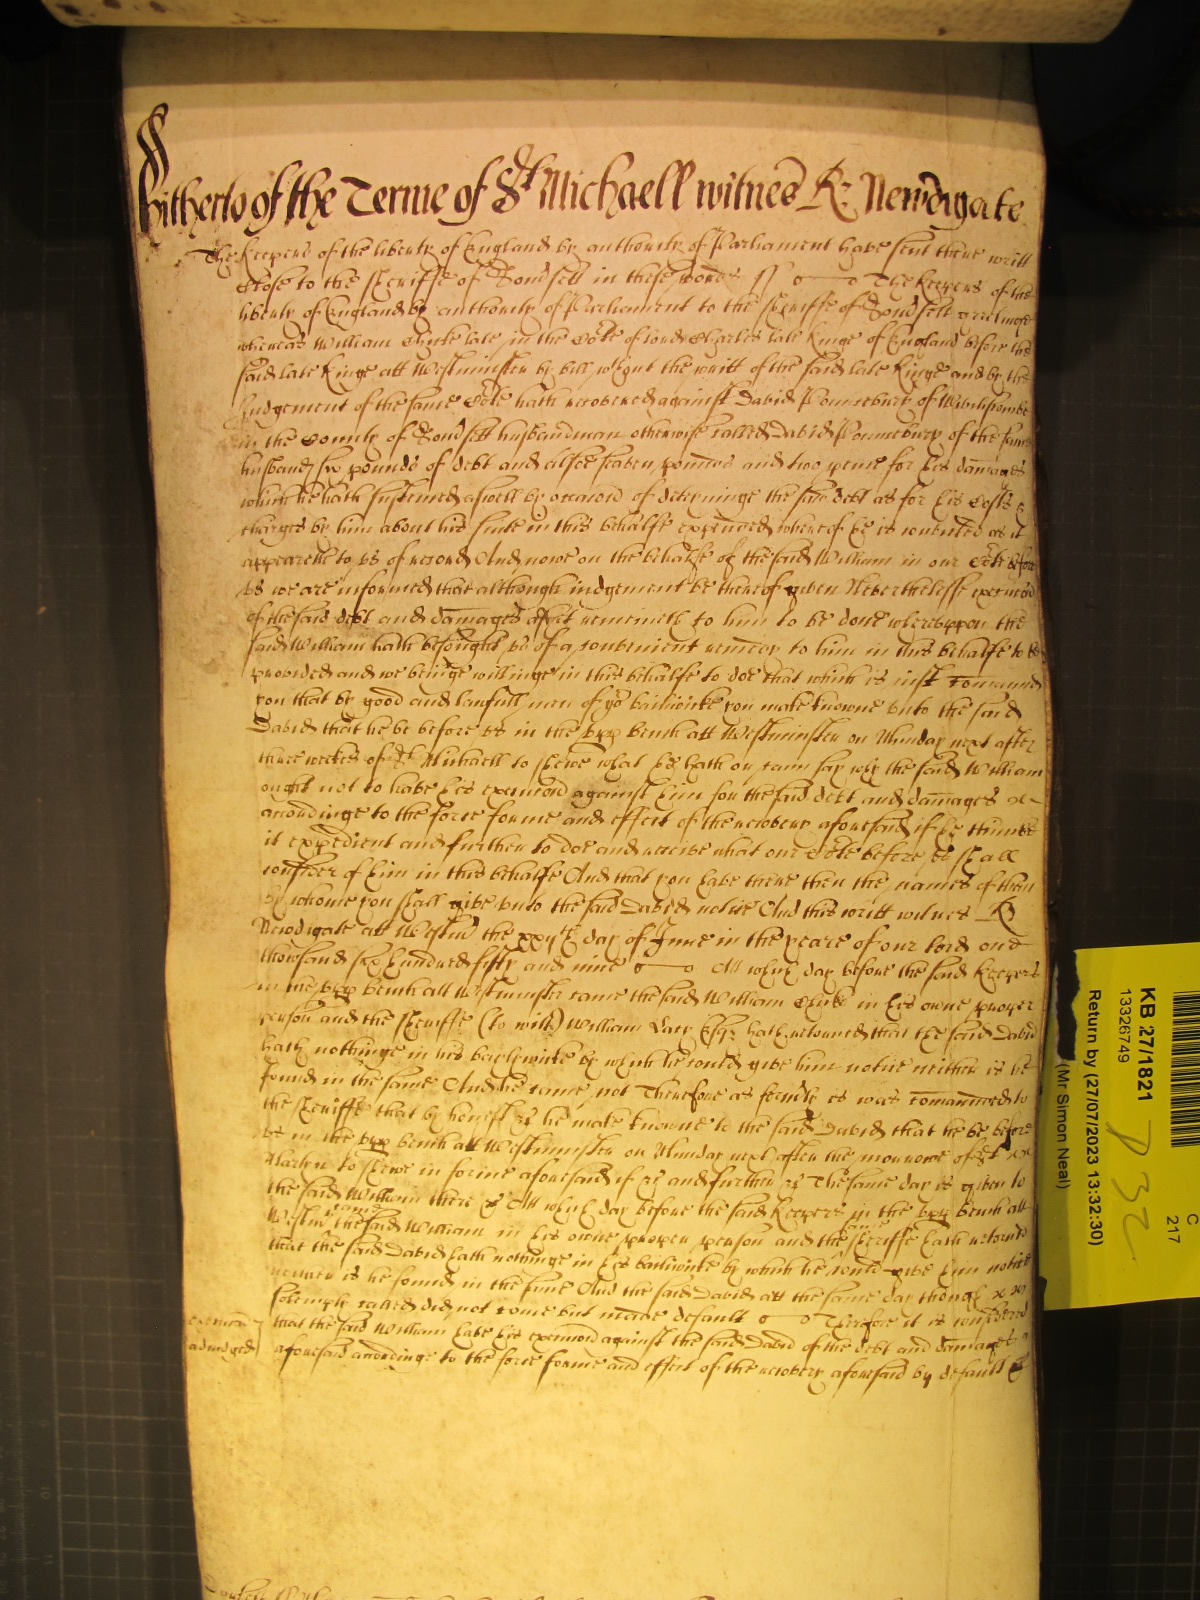 Hitherto of the Terme of St Michaell witnes R: Newdigate
The Keepers of the liberty of England by authority of Parliament have sent there writt
close to the Sheriffe of Somsett in these words ss The Keepers of the
liberty of England by authority of Parliament to the Sheriffe of Somsett greetinge
whereas William late in the Cote of lord Charles late Kinge of England before the
said late Kinge att Westminster by bill without the writt of the said late Kinge and by the
Judgement of the same Cote hath recovered against David Pounceburey of
in the County of Somsett husbandman otherwise called David Pounceburey of the same
husband six pounds of debt and alsoe seaven pounds and two pence for his damages
which he hath susteined aswell by occacon of deteyninge the said debt as for his costs &
charges by him about his suite in this behalfe expended whereof he is convicted as it
appeareth to us of record And nowe on the behalfe of the said William in our Cote before
us we are informed that although iudgement be thereof given Neverthelesse execucon
of the said debt and damages yett remaineth to him to be done whereuppon the
said William hath besought us of a convenient remedy to him in this behalfe to be
provided and we beinge willinge in this behalfe to doe that which is iust Comaund
you that by good and lawfull men of yor bailiwicke you make knowne unto the said
David that he be before us in the upp bench att Westminster on Munday next after
three weekes of St Michaell to shewe what he hath or cann say why the said William
ought not to have his execucon against him for the said debt and damages
accordinge to the force forme and effect of the recovery aforesaid if he thinke
it expedient and further to doe and receive what our Cote before us shall
consider of him in this behalfe And that you have there then the names of them
by whome you shall give unto the said David notice And this writt witnes R
Newdigate att Westmr the day of June in the yeare of our lord one
thowsand six hundred fifty and nine Att which day before the said Keepers
in the upp bench att Westminster came the said William in his owne proper
person and the Sheriffe (to witt) William Lacy Esqr hath retorned that the said David
hath nothinge in his bayliwicke by which he could give him notice neither is he
found in the same And he came not Therefore as formerly it was comaunded to
the Sheriffe that by honest &c he make knowne to the said David that he be before
us in the upp bench att Westminster on Munday next after the morrowe of St
Martyn to shewe in forme aforesaid if &c and further &c The same day is given to
the said William there &c Att which day before the said Keepers in the upp bench att
Westmr came the said William in his owne proper person and the same Sheriffe hath retorned
that the said David hath nothinge in his bailiwicke by which he could give him notice
neither is he found in the same And the said David att the same day though
solemply called did not come but made default Therefore it is considered
execucon that the said William have his execucon against the said David of the debt and damages
adiudged aforesaid accordinge to the force forme and effect of the recovery aforesaid by default &c
KB 27/1821
13326749
Return by (27/07/2023 13:32:30)
(Mr Simon Neal)
C
217